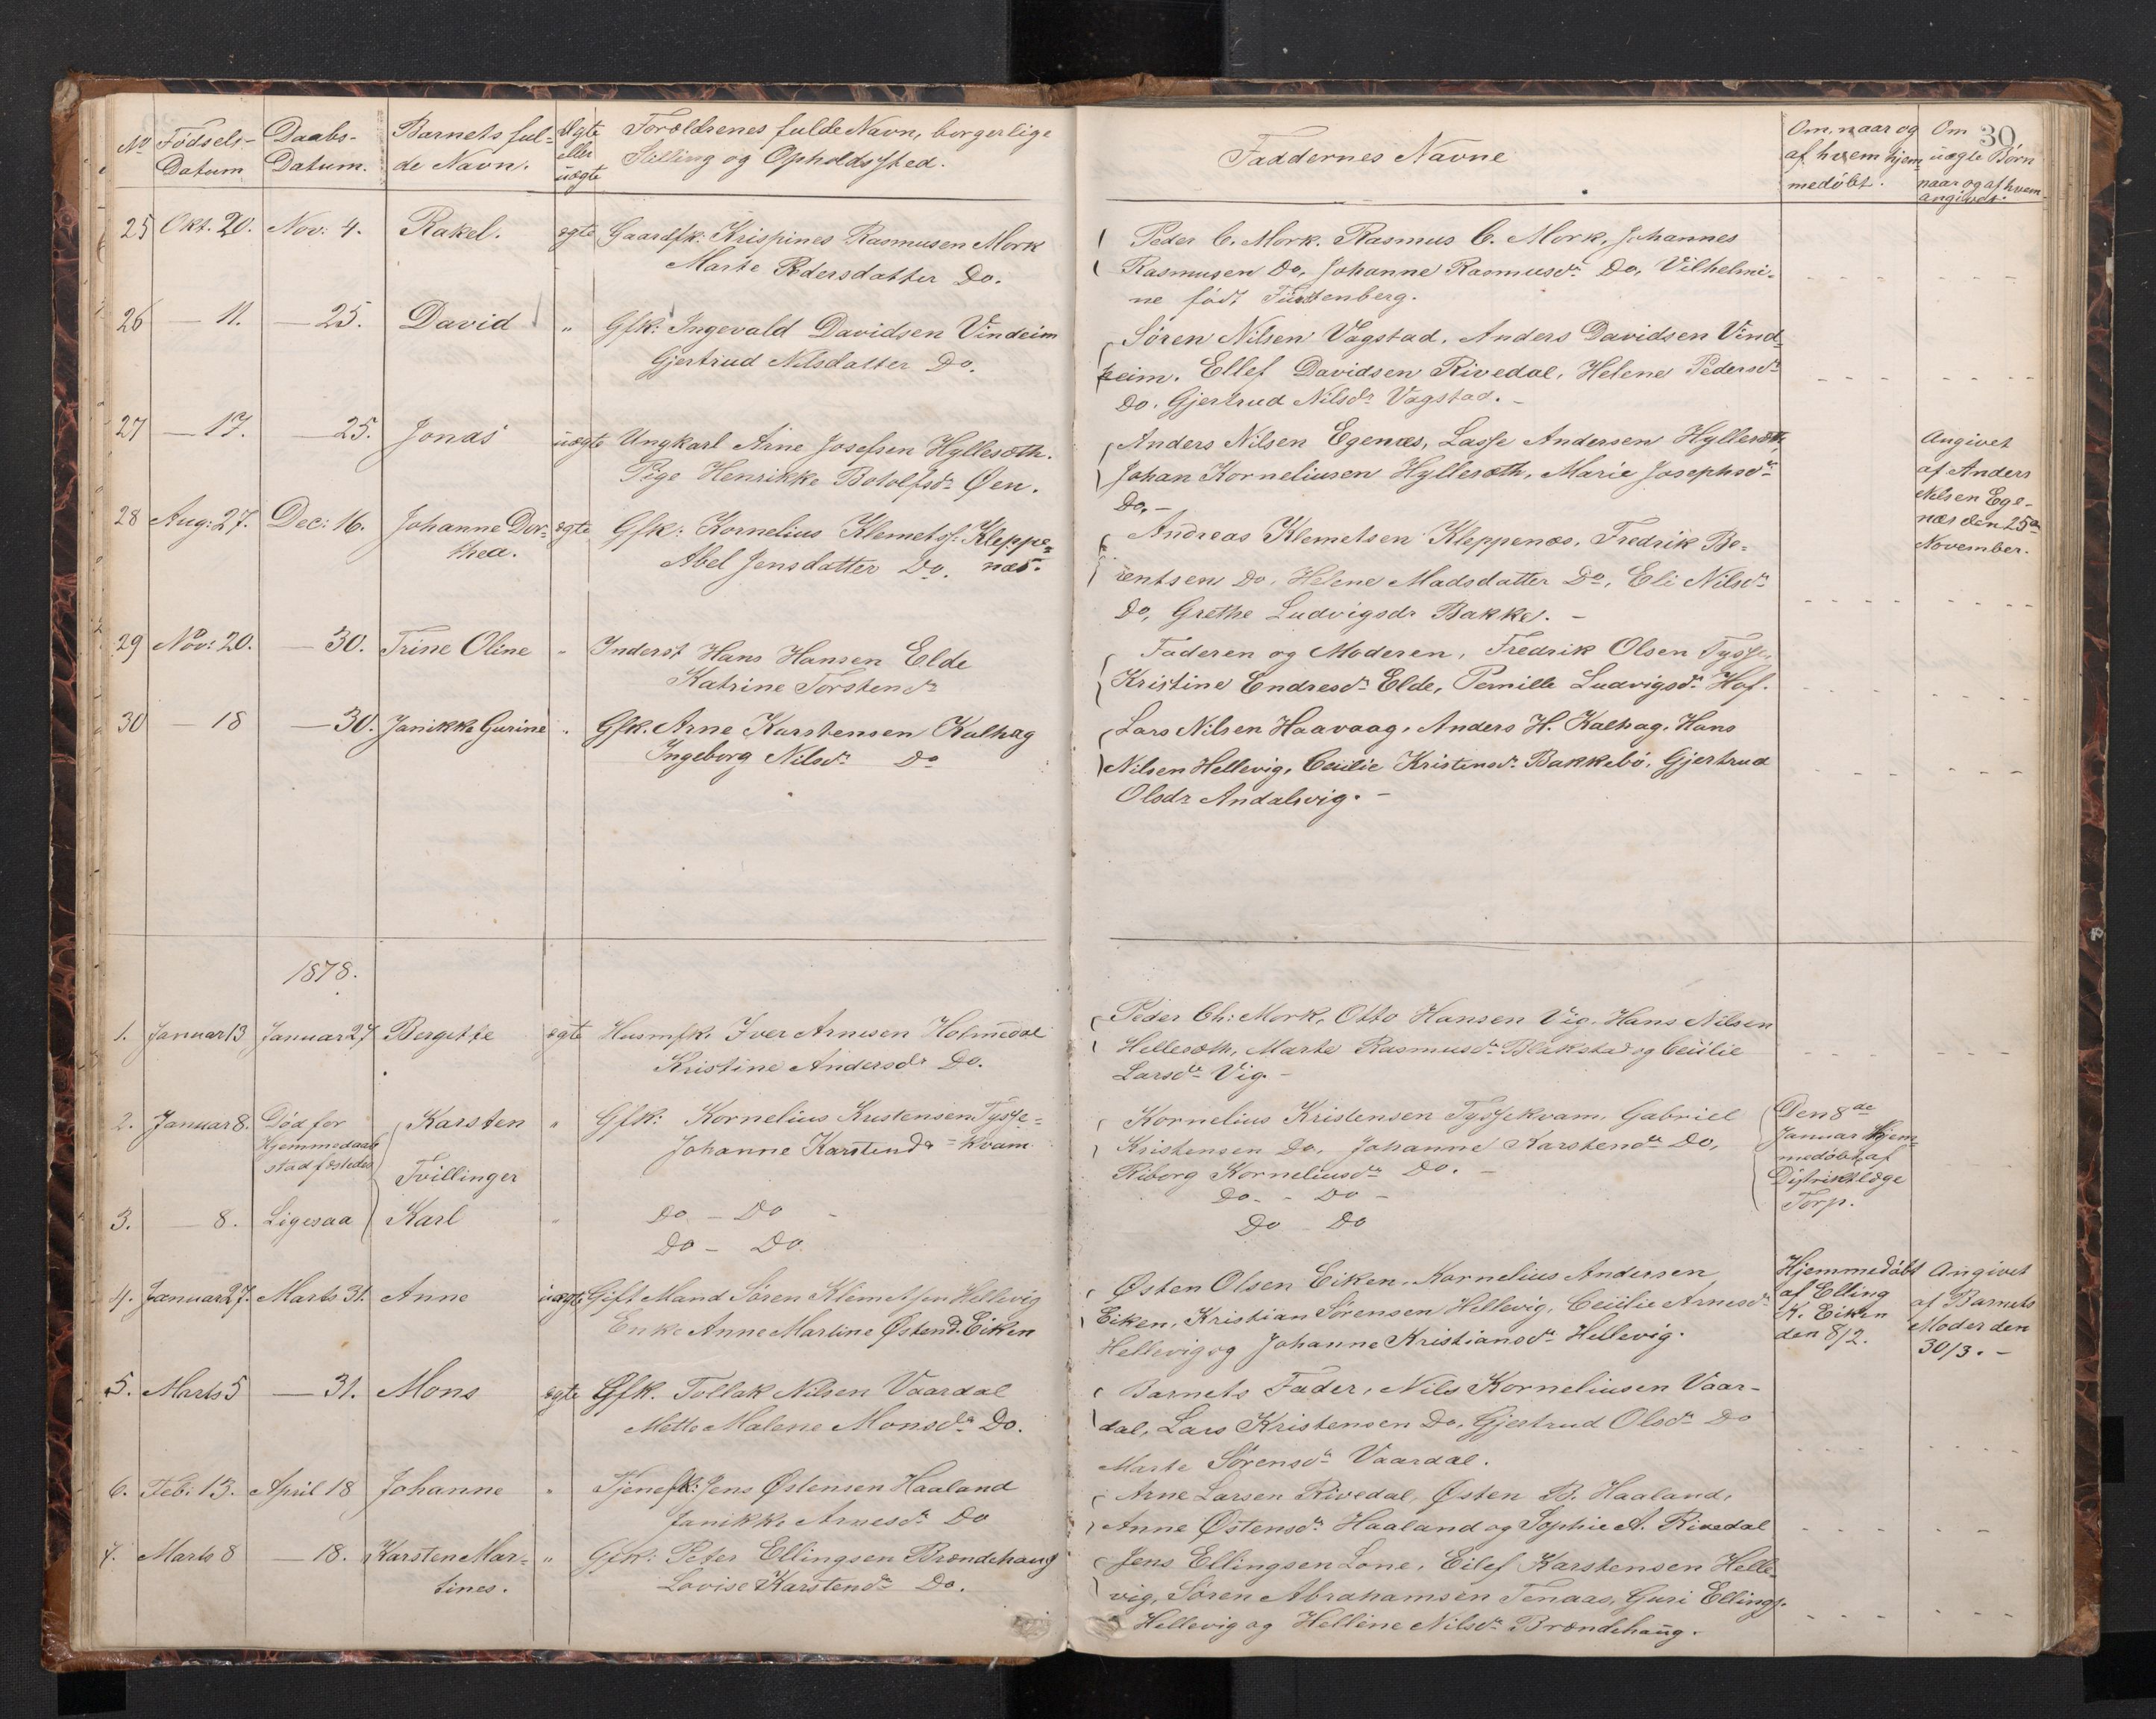 No Fødsels-
Datum
Daabs-
Datum.
Barnets ful-
de Navn.
Ægte
eller
uægte
Forældrenes fulde Navn, borgerlige
Stilling og Opholdssted.
25 Okt. 20. Nov: 4. Rakel. ægte Gaardsk: Krispines Rasmusen Mork
Marte Pedersdatter Do.
26 — 11. — 25. David " Gfk: Ingevald Davidsen Vindeim
Gjertrud Nilsdatter Do.
27 — 17. — 25. Jonas uægte Ungkarl Arne Josefsen Hyllesæth.
Pige Henrikke Botolfsdr Øen.
28 Aug: 27. Dec: 16. Johanne Dor- ægte Gfk: Kornelius Klemets: Kleppe-
thea. Abel Jensdatter Do. næs.
29 Nov: 20. — 30. Trine Oline " Inderst Hans Hansen Elde
Katrine Torstensdr
30 — 18 — 30. Janikke Gurine " Gfk. Arne Karstensen Kalhag
Ingeborg Nilsdr Do
1878.
1. Januar 13 Januar 27 Bergitte ægte Husmfk. Iver Arnesen Holmedal
Kristine Andersdr Do.
2. Januar 8. Død før Karsten " Gfk: Kornelius Kristensen Tysse-
Hjemmedaab Johanne Karstensdr = kvam
stadfæstedes Tvillinger
3. — 8. Ligesaa Karl " Do – Do –
Do – Do.
4. Januar 27. Marts 31. Anne uægte Gift Mand Søren Klemetsen Hellevig
Enke Anne Martine Østensd. Eiken
5. Marts 5 — 31. Mons ægte Gfk. Tollak Nilsen Vaardal
Mette Malene Monsdr Do.
6. Feb: 13. April 18 Johanne " Tjenefk: Jens Østensen Haaland
Janikke Arnesdr Do
7. Marts 8 — 18. Karsten Mar- " Gfk: Peter Ellingsen Brændehaug
tines. Lovise Karstensdr Do.
Faddernes Navne
Om, naar og
af hvem hjem-
medøbt.
Om
uægte Børn
naar og af hvem
angivet.
30
Peder C. Mork. Rasmus C. Mork, Johannes
Rasmusen Do, Johanne Rasmusdr Do, Vilhelmi-
ne født Fürstenberg.
Søren Nilsen Vagstad, Anders Davidsen Vind-
heim. Ellef Davidsen Rivedal, Helene Pedersdr
Do. Gjertrud Nilsdr Vagstad. –
Anders Nilsen Egenæs, Lasse Andersen Hyllesæth,
Johan Korneliusen Hyllesæth, Marie Josephsdr
Do. –
Angivet
af Anders
Nilsen Ege-
næs den 25de
November.
Andreas Klemetsen Kleppenæs, Fredrik Be-
rentsen Do, Helene Madsdatter Do, Eli Nilsdr
Do, Grethe Ludvigsdr Bakke. –
Faderen og Moderen, Fredrik Olsen Tysse,
Kristine Endresdr Elde, Pernille Ludvigsdr Hof.
Lars Nilsen Haavaag, Anders H. Kalhag, Hans
Nilsen Hellevig, Cecilie Kristensdr Bakkebø, Gjertrud
Olsdr Andalsvig. –
Peder Ch: Mork, Otto Hansen Vig, Hans Nilsen
Hellesæth, Marte Rasmusdr Blakstad og Cecilie
Larsdr Vig. –
Kornelius Kristensen Tyssekvam, Gabriel
Kristensen Do, Johanne Karstensdr Do,
Riborg Korneliusdr Do. –
Do – Do –
Do Do
Den 8de
Januar hjem-
medøbt af
Distriktslæge
Torp.
Østen Olsen Eiken, Kornelius Andersen
Eiken, Kristian Sørensen Hellevig, Cecilie Arnesdr
Hellevig og Johanne Kristiansdr Hellevig.
Hjemmedøbt
af Elling
K. Eiken
den 8/2.
Angivet
af Barnets
Moder den
30/3. –
Barnets Fader, Nils Korneliusen Vaar-
dal, Lars Kristensen Do, Gjertrud Olsdr Do
Marte Sørensdr Vaardal.
Arne Larsen Rivedal, Østen B. Haaland,
Anne Østensdr Haaland og Sophie A. Rivedal
Jens Ellingsen Lone, Eilef Karstensen Helle-
vig, Søren Abrahamsen Tenaas, Guri Ellings.
Hellevig og Hellene Nilsdr Brændehaug.